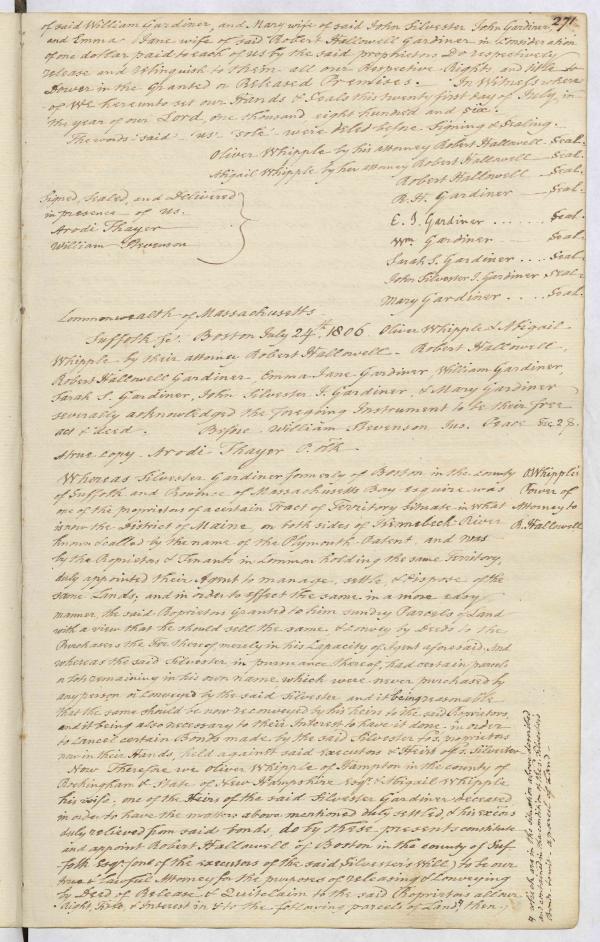 271
of said William Gardiner, and Mary wife of said John Silvester John Gardiner
and Emma Jane wife of said Robert Hallowell Gardiner in Consideration
of one dollar paid to each of us by the said proprietors Do respectively
release and relinquish to them all our Respective Right and title to
Dower in the Granted or Released Premises. In Witness where
of We hereunto set our Hands & Seals this twenty first day of July, in
the year of our Lord, one thousand eight hundred and six.
The words "said" "us" "sole" were before Signing & Sealing.
Oliver Whipple by his attorney Robert Hallowell Seal.
Abigail Whipple by her attorney Robert Hallowell Seal.
Robert Hallowell Seal.
Signed, Sealed, and Delivered
in presence of us.
Arodi Thayer
William Stevenson
R. H. Gardiner Seal.
E. J. Gardiner Seal.
Wm. Gardiner Seal.
Sarah S. Gardiner Seal.
John Silvester J. Gardiner Seal.
Mary Gardiner Seal.
Commonwealth of Massachusetts
Suffolk Boston July 24th. 1806 Oliver Whipple & Abigail
Whipple by their attorney Robert Hallowell. Robert Hallowell,
Robert Hallowell Gardiner, Emma Jane Gardiner, William Gardiner,
Sarah S. Gardiner, John Silvester J. Gardiner, & Mary Gardiner
severally acknowledged the foregoing Instrument to be their free
act & deed. Before William Stevenson Jus. Peace
A true Copy. Arodi Thayer P. Clk
O. Whipple's
Power of
Attorney to
R. Hallowell
Whereas Silvester Gardiner formerly of Boston in the County
of Suffolk and Province of Massachusetts Bay esquire was
one of the proprietors of a certain Tract of Territory Situate in what
is now the District of Maine, on both sides of Kennebeck River
known & called by the name of the Plymouth Patent, and was
by the Proprietors & Tenants in Common holding the same Territory,
duly appointed their Agent to manage, settle, & dispose of the
same Lands; and in order to effect the same in a more easy
manner, the said Proprietors Granted to him sundry Parcels of Land
with a view that he should sell the same, & convey by Deeds to the
Purchasers the Fee thereof merely in his Capacity of Agent aforesaid. And
whereas the said Silvester in pursuance thereof, had certain parcels
or lots remaining in his own name which were never purchased by
any person or Conveyed by the said Silvester, and it being reasonable
that the same should be now reconveyed by his heirs to the said Proprietors,
and it being also necessary to their Interest to have it done in order
to Cancel certain Bonds made by the said Silvester to said Proprietors
now in their Hands, held against said Executors & Heirs of sd. Silvester
Now Therefore we Oliver Whipple of Hampton in the county of
Rockingham & State of New Hampshire Esqr. & Abigail Whipple
his wife, one of the Heirs of the said Silvester Gardiner deceased,
in order to have the matters above mentioned duly settled, & his Excors
duly relieved from said bonds, do by these presents constitute
and appoint Robert Hallowell of Boston in the county of Suf-
folk Esqr. (one of the Executors of the said Silvester's Will) to be our
true & Lawful Attorney for the purposes of releasing & Conveying
by Deed of Release & Quitclaim to the said Proprietors all our
Right, Title & Interest in & to the following parcels of Land, then,
which are in the situation above described
and contained in the condition of the sd. Silvesters
Bonds to wit a parcel of Land